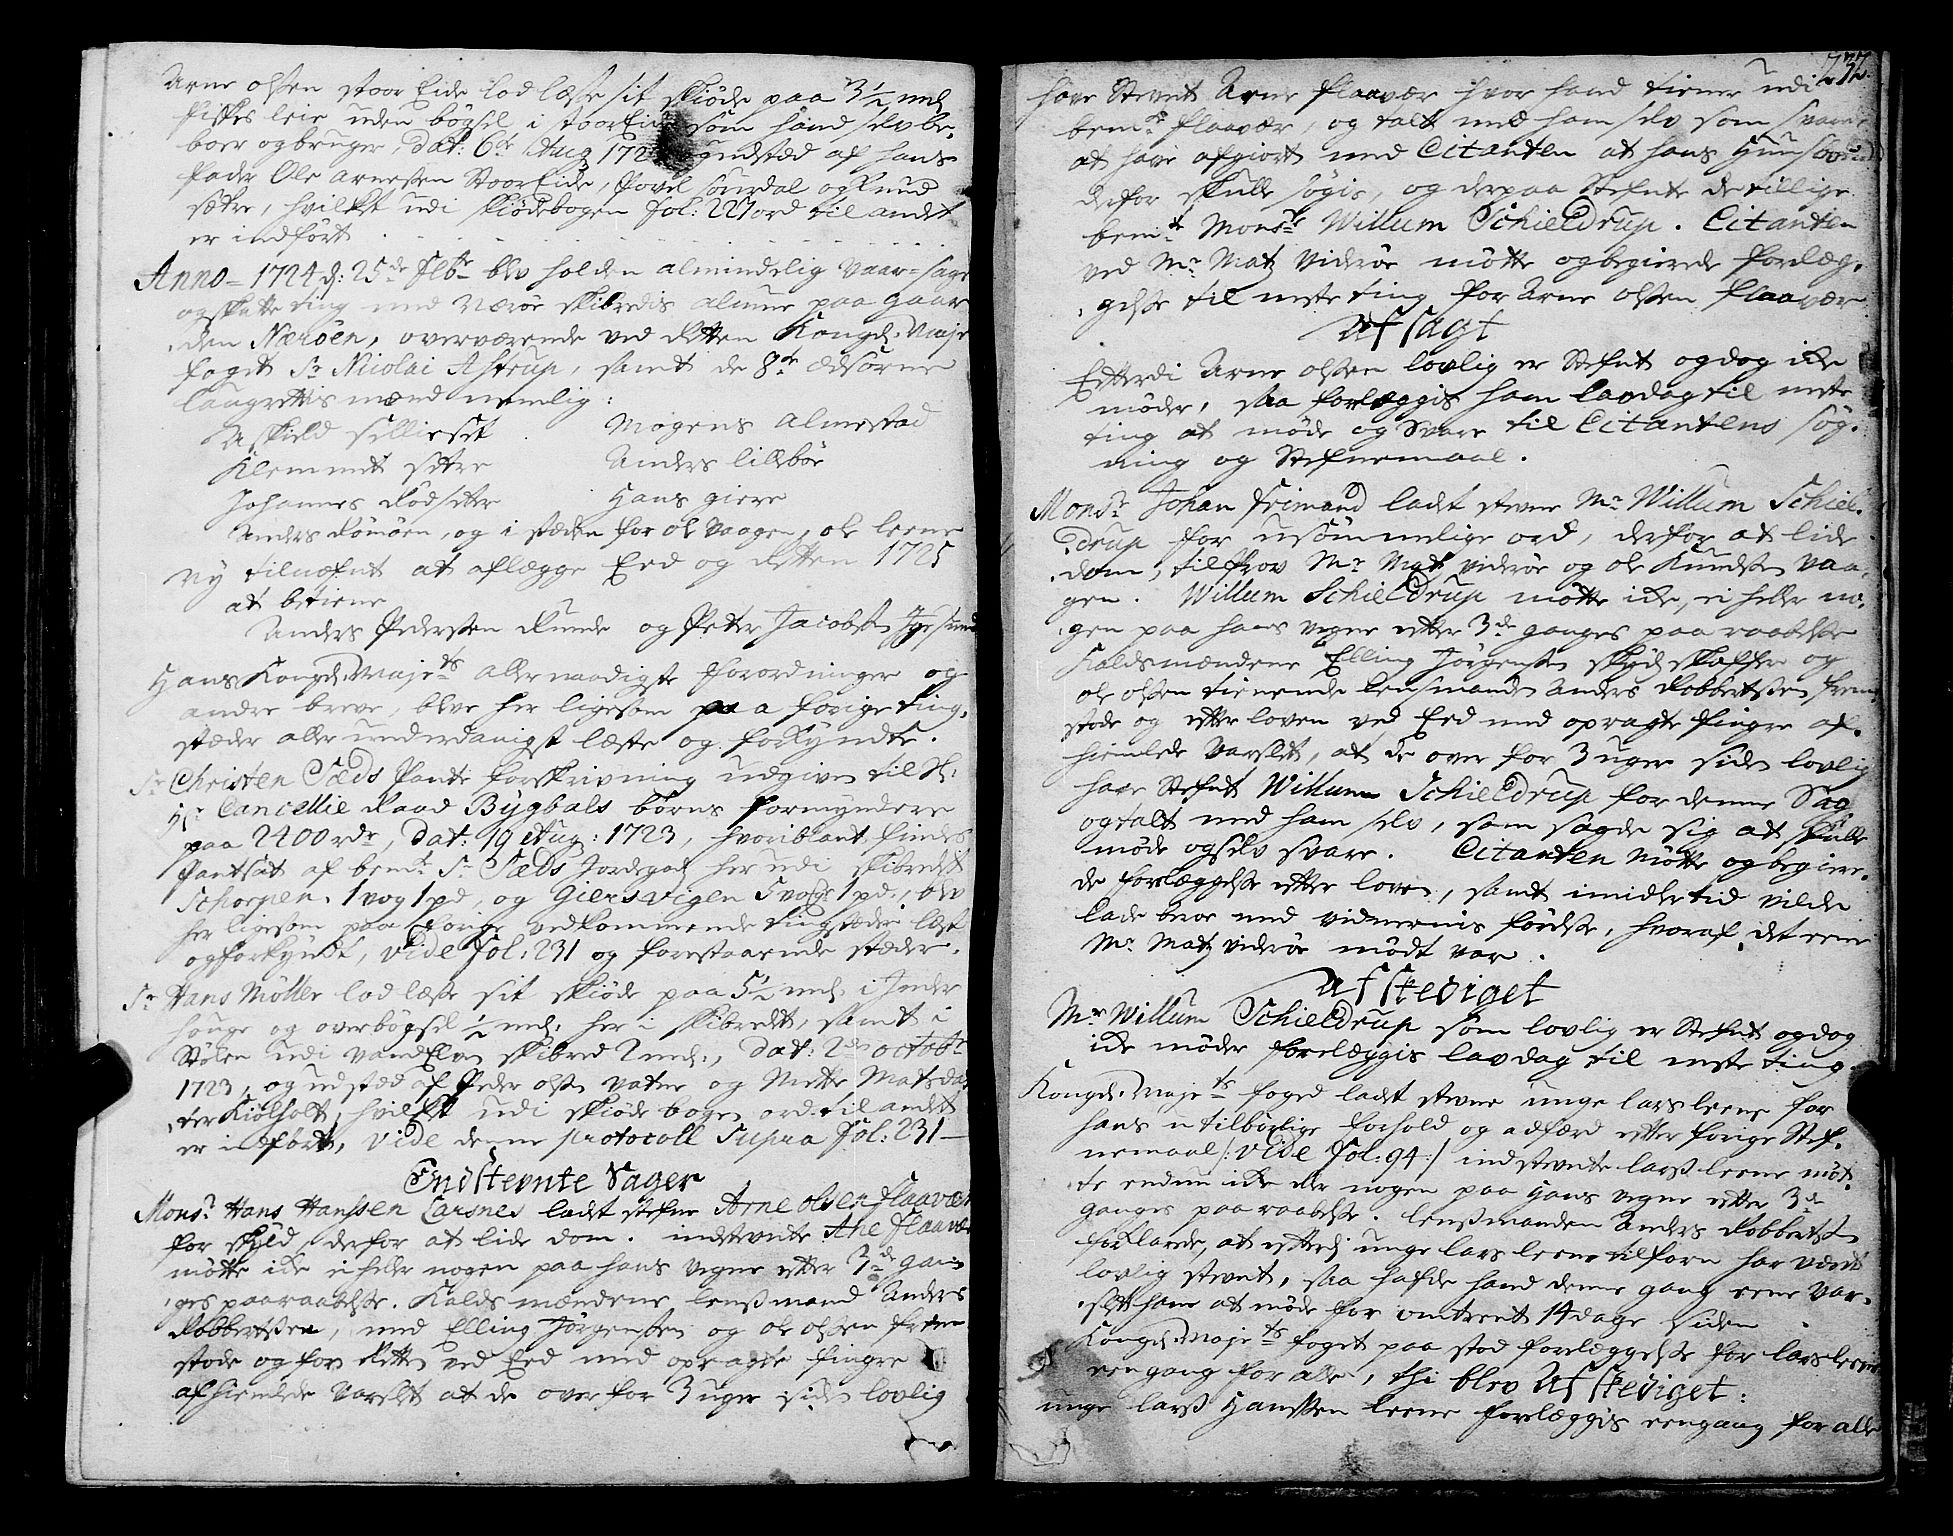 Arne olsen stoor Eide lod læsse sit skiöde paa 3½ mrk
fiskes leie uden bögsel i stoor Eide som hand selv be¬
boer og bruger dat: 6te Aug 172 udstæd af hans
fader Ole Arnessen Stoor Eide, Povel Sourdal og Knud
sætre, hvilket udi skiödebogen fol: 227 ord til andet
er indfört
Anno 1724 d: 25de Febr blev holden almindelig vaar-sage
og skatte ting med Nærøe skibredes almue paa gaar¬
den Nærøen, overværende ved Retten Kongl: Maje
foget Sr Nicolai Astrup, samt de 8te Edsorne
laugrettis mænd nemlig:
Askield sellieset Mogens Almestad
Klemmet sætre Anders lillebøe
Johannes Rödsetter Hans giere
Anders Römöen, og i steden for Ole Vaagen, ole leene
Ny tilnæfnt at aflegge Eed og Retten 1725
at betiene
Anders Pedersen Runde og Peter Jacobsen Igesund
Hans Kongl: Majets aller naadigste forordninger og
andre breve, blev her ligesom paa forige ting¬
stæder aller underdanigst læste og forkyndte.
Sr Christen Sæds Pante forskrivning udgiven til Sl:
Hr Cancellie Raad Bygbals börns formyndere
paa 2400 rdr, Dat: 19 Aug: 1723, hvoriblant findes
Pantsat af bemte Sr Sæds Jordegods her udi skibredet
Schorpen 1 vog 1 pd, og Giersvigen 5 voger 1 pd, blev
her ligesom paa forige vedkommende tingstæder læst
og forkyndt, vide Fol: 231 og forestaaende stæder.
Sr Hans Möller lod læsse sit skiöde paa 5½ mrk i Inder
houge og overbögsel ½ mrk her i skibredet, samt i
Stölen udi VandElvs skibred 2 mrk, Dat: 2de octobr
1723, og udstæd af Peder olsen vatne og Mette Matsdat
ter Kiölholt, hvilket udi skiöde bogen ord til andet
er indført, vide denne protocoll Supra Fol: 231
Indstevnte Sager
Monsr Hans Hanssen Larsnes ladet stefne Arne olsen Flaavær
for skyld, derfor at lide dom. indstevnte Arne Flaavær
mötte icke ei heller nogen paa hans vegne efter 3de gan¬
ges paaraabelse. Kalds mændene lensmand Anders
Robbertsen, med Elling Jörgensen og ole olsen frem
stode og for Retten ved Eed med opragte fingre
afhiemlede varslet at de over for 3 uger siden lovlig
232
have stevnt Arne Flaavær hvor hand tiener udi
bemte Flaavær, og talt med ham selv som svarede
at have afgiort med Citanten at hans Huusbond
derfor skulle søgis, og derpaa stefnte de tillige
bemte Monsr Willum Schieldrup. Citanten
ved Mr Matz viderøe mötte og begierede forlæg¬
gelsse til neste ting for Arne olsen Flaavær
Afsagt
Efterdi Arne olsen lovlig er stefnt og dog icke
møder, saa forlæggis ham lavdag til neste
ting at møde og svare til Citantens søg¬
ning og stefnemaal.
Monsr Johan Frimand ladet stevne Mr Willum Schiel¬
drup for usömmelige ord, derfor at lide
dom, tilstov Mr Matz viderøe og ole Knudsen vaa¬
gen. Willum Schieldrup mötte icke, ei heller no¬
gen paa hans vegne efter 3de ganges paaraabelsse
Kaldsmændene Elling Jörgensen skydskaffer og
ole olsen tienende lensmanden Anders Robbertsen frem
stode og efter loven ved Eed med opragte fingre af¬
hiemlede varslet, at de over for 3 uger siden lovlig
have stefnt Willum Schieldrup for denne Sag
og talt med ham selv, som sagde sig at skulle
møde og selv svare. Citanten mötte og begiere¬
de forlæggelsse efter loven, samt imidlertid vilde
lade beroe med vidnernis førelse, hvoraf det eene
Mr Matz viderøe mödt var.
Afskediget
Mr Willum Schieldrup som lovlig er stefnt og dog
icke møder forelæggis lavdag til neste ting.
Kongl: Majets foged ladet stevne unge lars leene for
hans utilbörlige forhold og adfærd efter forige stef¬
nemaal /: vide Fol: 94:/ indstevnte lars leene møt¬
te endnu icke eller nogen paa hans vegne efter 3de
ganges paaraabelsse. lensmanden Anders Robbertsen
forklarede, at efterdj unge lars leene tilforn har været
lovlig stevnt, saa hafde hand denne gang eene var¬
slet ham at møde for omtrent 14 dage siden
Kongl: Majets foget paa stod forelæggelsse for lars leene
een gang for alle, thi blev Afskediget:
unge lars Hanssen leene forelæggis eengang for alle